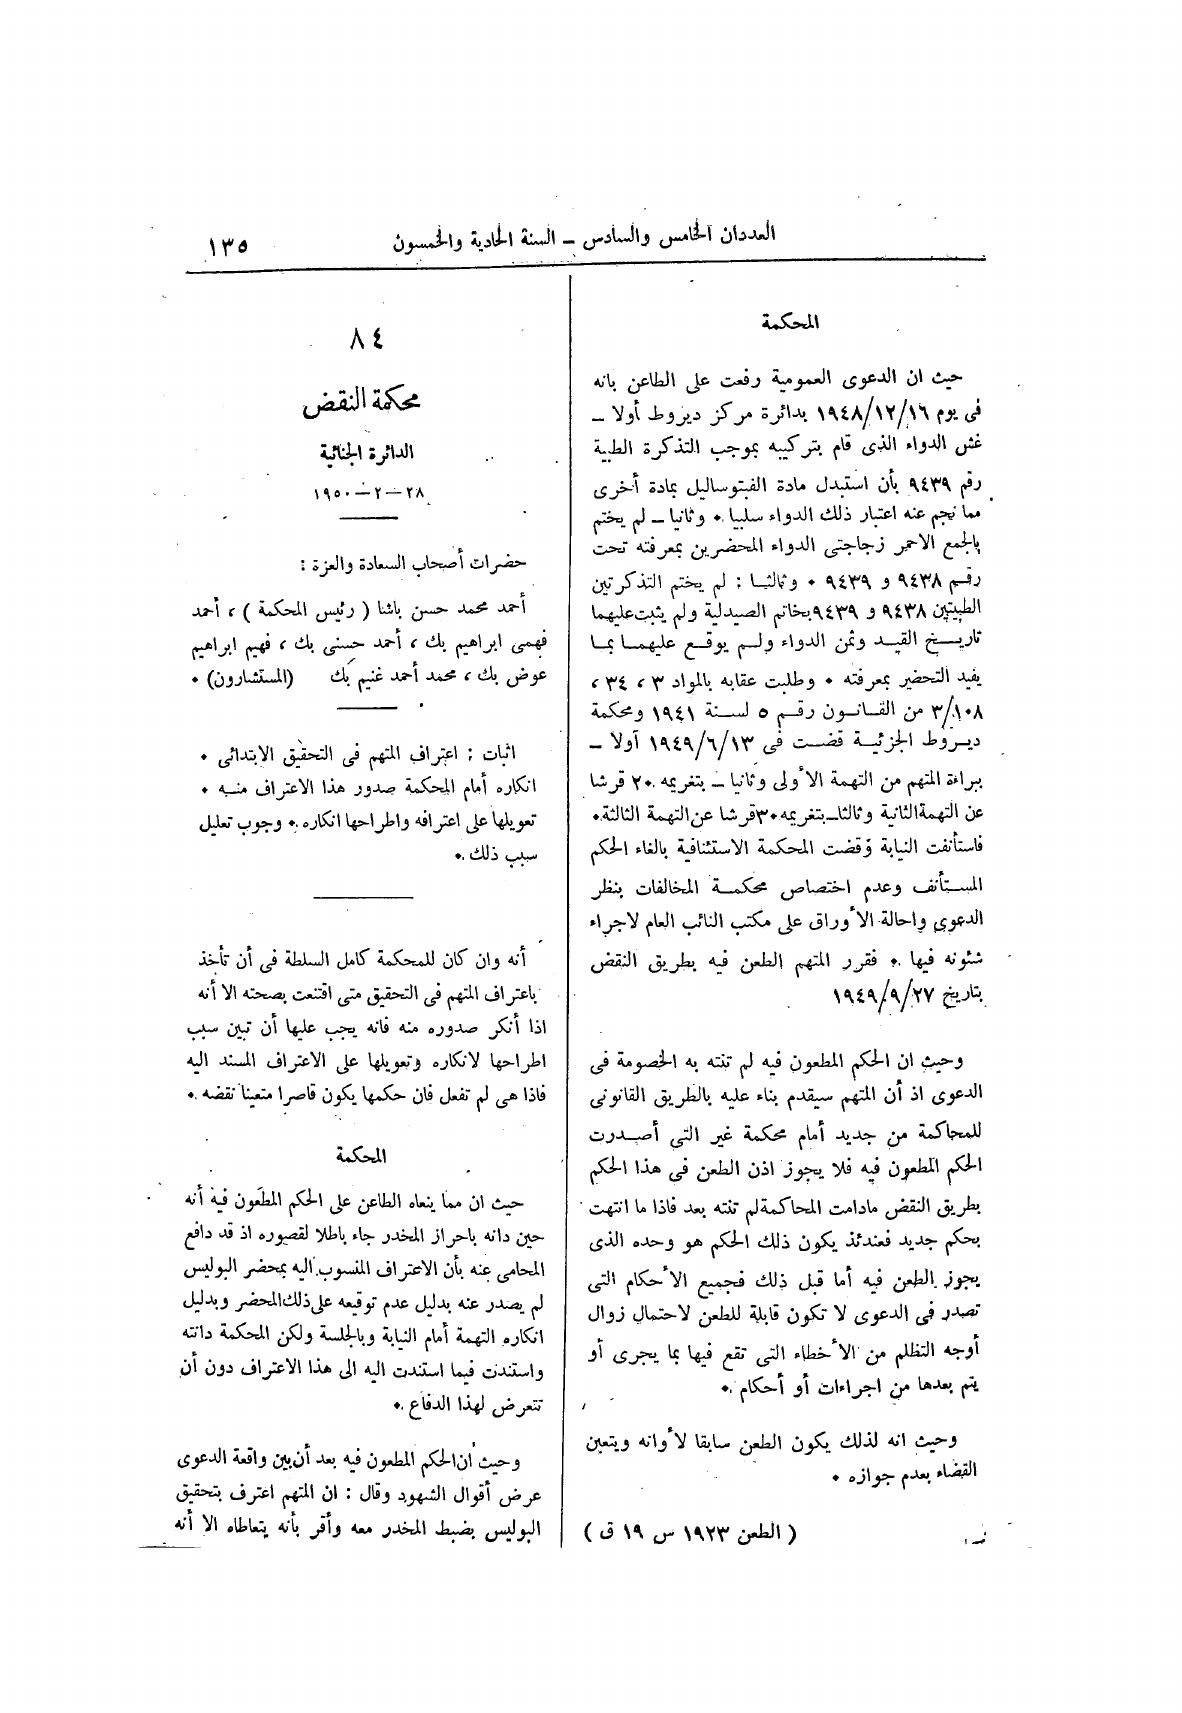 العددان الخامس والسادس – السنة الحادية والخمسون
١٣٥
المحكمة
حيث ان الدعوى العمومية رفعت على الطاعن بانه
فى يوم ١٩٤٨/١٢/١٦ بدائرة مركز ديروط أولا –
غش الدواء الذى قام بتركيبه بموجب التذكرة الطبية
رقم ٩٤٣٩ بأن استبدل مادة الفيتوساليل بمادة أخرى
مما نجم عنه اعتبار ذلك الدواء سلبيا . وثانيا – لم يختم
بالجمع الاحمر زجاجتى الدواء المحضرين بمعرفته تحت
رقم ٩٤٣٨ و ٩٤٣٩ . وثالثا : لم يختم التذكرتين
الطبيتين ٩٤٣٨ و ٩٤٣٩ بخاتم الصيدلية ولم يثبت عليهما
تاريخ القيد وثمن الدواء ولم يوقع عليهما بما
يفيد التحضير بمعرفته . وطلبت عقابه بالمواد ٣ ، ٣٤ ،
٣/١٠٨ من القانون رقم ٥ لسنة ١٩٤١ ومحكمة
ديروط الجزئية قضت فى ١٩٤٩/٦/١٣ أولا –
ببراءة المتهم من التهمة الأولى وثانيا – بتغريمه ٢٠ قرشا
عن التهمة الثانية وثالثا – بتغريمه ٣٠ قرشا عن التهمة الثالثة .
فاستأنفت النيابة وقضت المحكمة الاستئنافية بالغاء الحكم
المستأنف وعدم اختصاص محكمة المخالفات بنظر
الدعوى واحالة الأوراق على مكتب النائب العام لاجراء
شئونه فيها . فقرر المتهم الطعن فيه بطريق النقض
بتاريخ ١٩٤٩/٩/٢٧
وحيث ان الحكم المطعون فيه لم تنته به الخصومة فى
الدعوى اذ أن المتهم سيقدم بناء عليه بالطريق القانونى
للمحاكمة من جديد أمام محكمة غير التى أصدرت
الحكم المطعون فيه فلا يجوز اذن الطعن فى هذا الحكم
بطريق النقض مادامت المحاكمة لم تنته بعد فاذا ما انتهت
بحكم جديد فعندئذ يكون ذلك الحكم هو وحده الذى
يجوز الطعن فيه أما قبل ذلك فجميع الأحكام التى
تصدر فى الدعوى لا تكون قابلة للطعن لاحتمال زوال
أوجه التظلم من الأخطاء التى تقع فيها بما يجرى أو
يتم بعدها من اجراءات أو أحكام .
وحيث انه لذلك يكون الطعن سابقا لأوانه ويتعين
القضاء بعدم جوازه .
( الطعن ١٩٢٣ س ١٩ ق )
٨٤
محكمة النقض
الدائرة الجنائية
٢٨–٢–١٩٥٠
حضرات أصحاب السعادة والعزة :
أحمد محمد حسن باشا ( رئيس المحكمة ) ، أحمد
فهمى ابراهيم بك ، أحمد حسنى بك ، فهيم ابراهيم
عوض بك ، محمد أحمد غنيم بك (المستشارون) .
اثبات : اعتراف المتهم فى التحقيق الابتدائى .
انكاره أمام المحكمة صدور هذا الاعتراف منه .
تعويلها على اعترافه واطراحها انكاره . وجوب تعليل
سبب ذلك .
أنه وان كان للمحكمة كامل السلطة فى أن تأخذ
باعتراف المتهم فى التحقيق متى اقتنعت بصحته الا أنه
اذا أنكر صدوره منه فانه يجب عليها أن تبين سبب
اطراحها لانكاره وتعويلها على الاعتراف المسند اليه
فاذا هى لم تفعل فان حكمها يكون قاصرا متعينا نقضه .
المحكمة
حيث ان مما ينعاه الطاعن على الحكم المطعون فيه أنه
حين دانه باحراز المخدر جاء باطلا لقصوره اذ قد دافع
المحامى عنه بأن الاعتراف المنسوب اليه بمحضر البوليس
لم يصدر عنه بدليل عدم توقيعه على ذلك المحضر وبدليل
انكاره التهمة أمام النيابة وبالجلسة ولكن المحكمة دانته
واستندت فيما استندت اليه الى هذا الاعتراف دون أن
تتعرض لهذا الدفاع .
وحيث أن الحكم المطعون فيه بعد أن بين واقعة الدعوى
عرض أقوال الشهود وقال : ان المتهم اعترف بتحقيق
البوليس بضبط المخدر معه وأقر بأنه يتعاطاه الا أنه